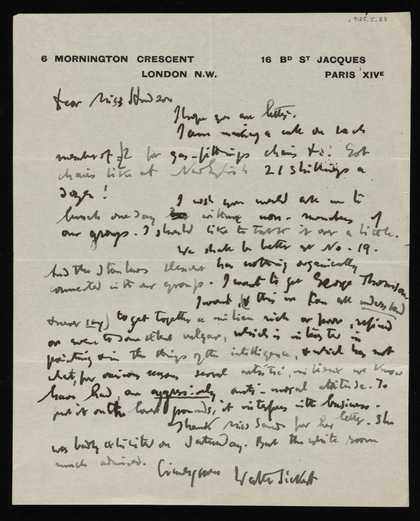 6 MORNINGTON CRESCENT
LONDON N.W.
16 BD ST JACQUES
PARIS XIVE
Dear Miss Hudson
I hope you are better.
I am making a call on each
member of £2 for gas-fittings chairs &c! Got
chairs like at New English 21 shillings a
dozen!
I wish you would ask me to
lunch one day with non-members of
our groups. I should like to talk it over a little.
We shall be better at No. 19.
And the has nothing organically
connected with our groups. I want to get George Thomson
I want this in from all
to get together a milieu rich or poor, refined
or even to some extent vulgar, which is interested in
painting & in the things of the intelligence, & which has not
for various reasons several milieux we know
have had, an aggressively anti-moral attitude. To
put it on the lowest grounds, it interferes with business.
Thank Miss Sands for her letter. She
was badly exhibited on Saturday. But the white room
much admired.
Walter Sickert